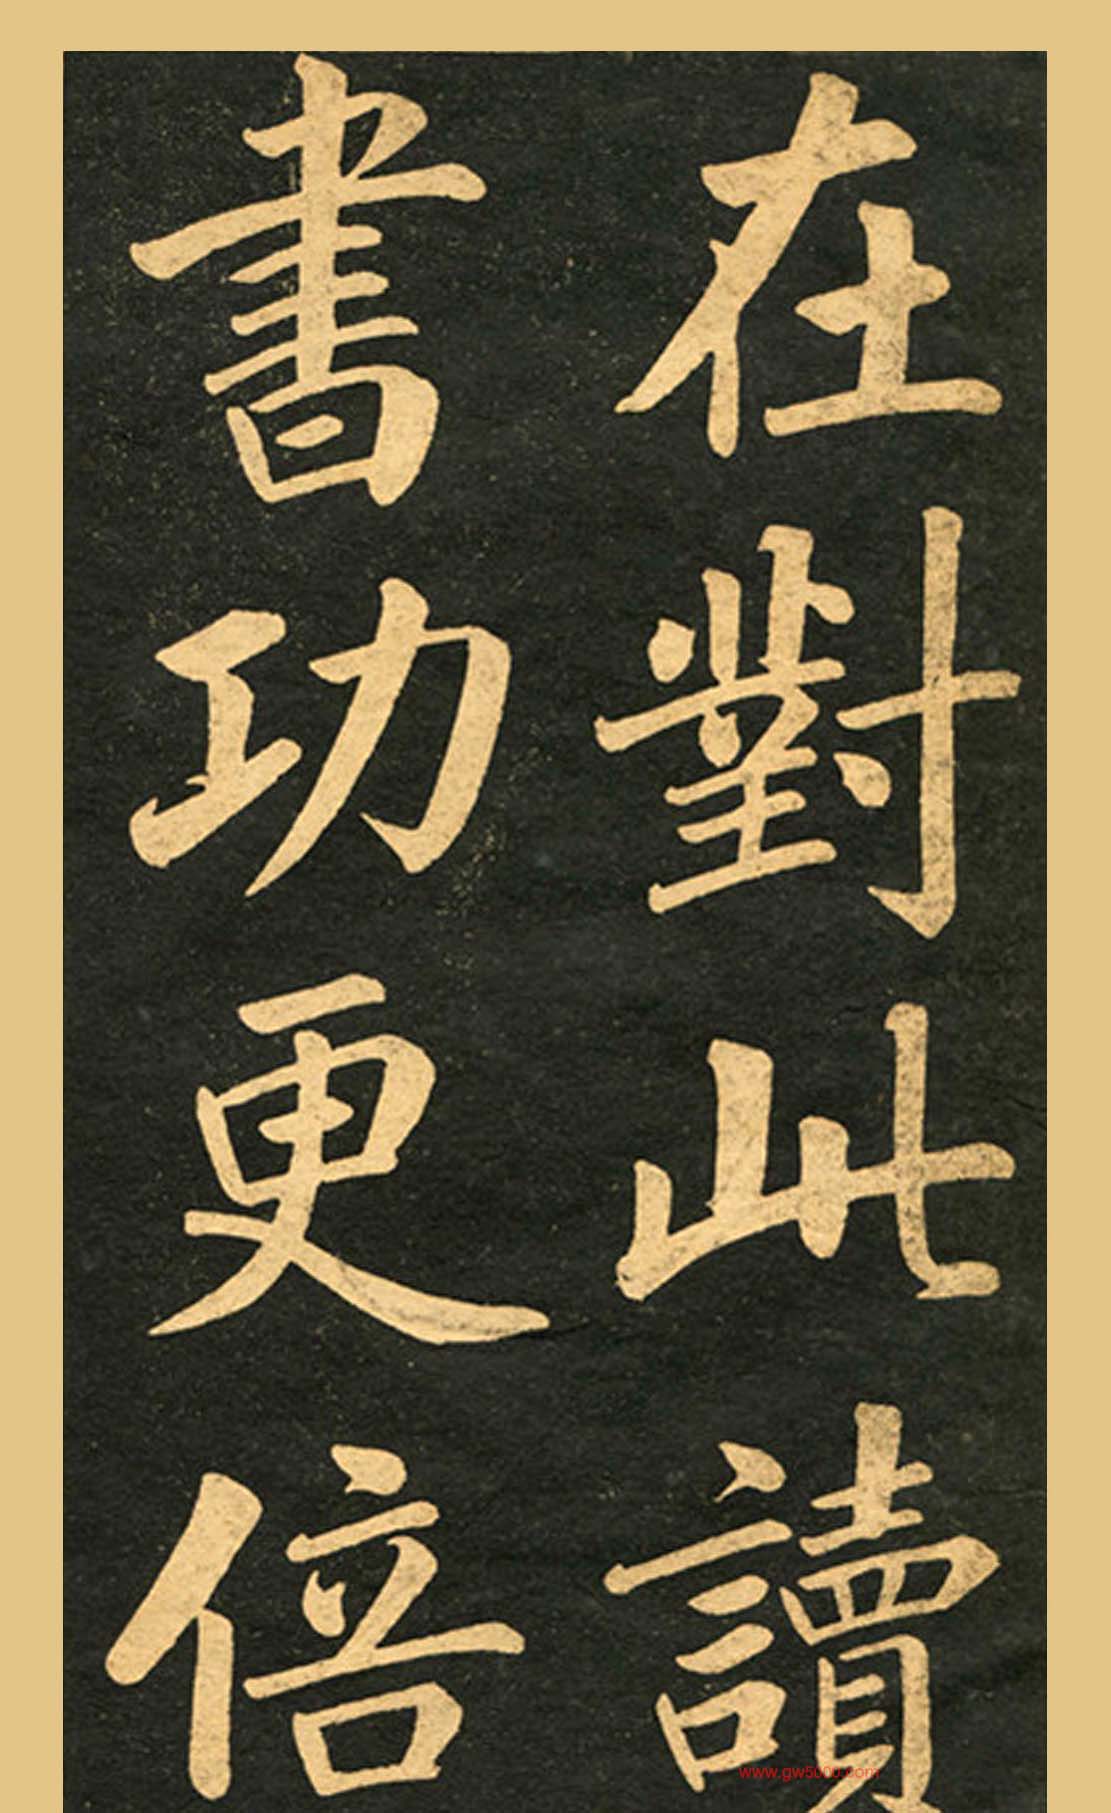 在對此讀
書功更倍
www.gw5000.com